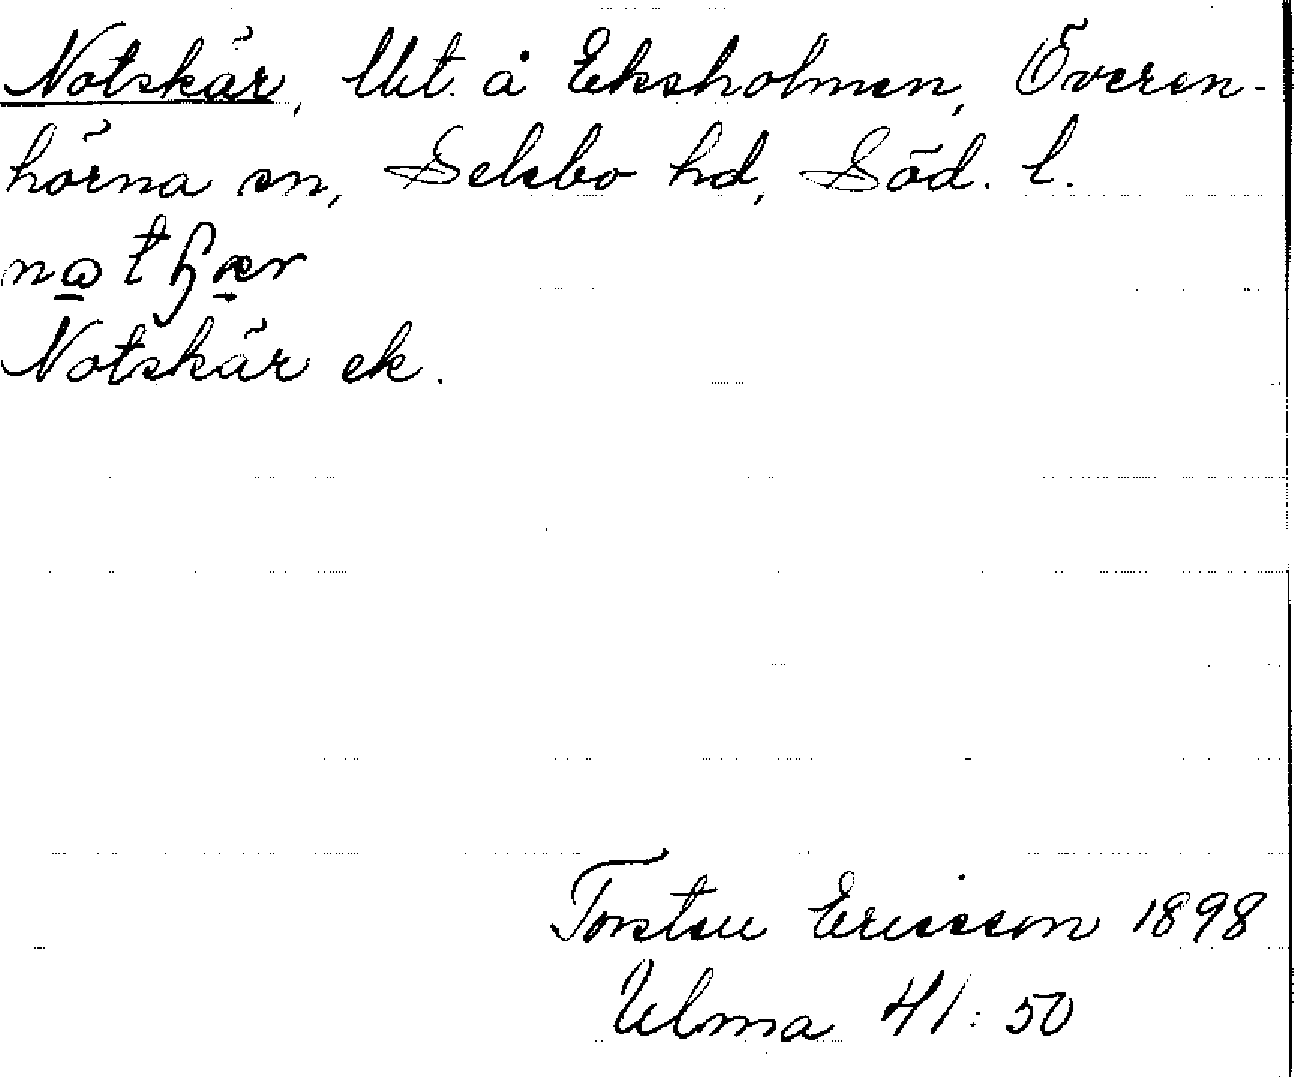 Notskär, Ut. å Eksholmen, Överen-
hörna sn, Selebo hd, Söd. l.
Notskär ek.
Torsten Ericsson 1898
Ulma 41:50